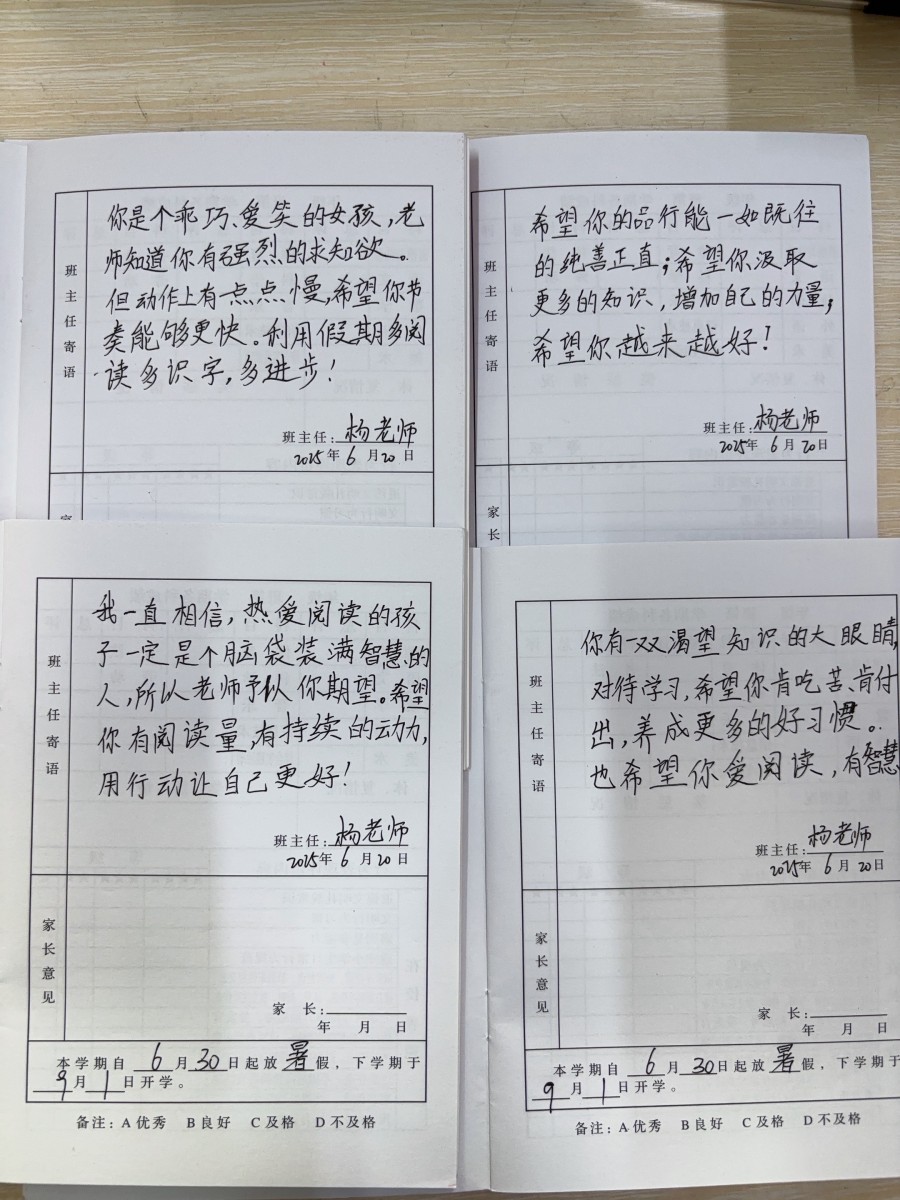 班主任寄语
你是个乖巧、爱笑的女孩,老
师知道你有强烈的求知欲。
但动作上有一点点慢,希望你节
奏能够更快。利用假期多阅
读多识字,多进步!
班主任:杨老师
2025年 6 月 20 日
家
班主任寄语
希望你的品行能一如既往
的纯善正直;希望你汲取
更多的知识,增加自己的力量;
希望你越来越好!
班主任:杨老师
2025年 6 月 20 日
家长
班主任寄语
我一直相信,热爱阅读的孩
子一定是个脑袋装满智慧的
人,所以老师予以你期望。希望
你有阅读量,有持续的动力,
用行动让自己更好!
班主任:杨老师
2025年 6 月 20 日
家长意见
家 长:
年 月 日
本学期自 6 月 30 日起放 暑 假,下学期于
9 月 1 日开学。
备注:A优秀 B良好 C及格 D不及格
班主任寄语
你有一双渴望知识的大眼睛,
对待学习,希望你肯吃苦、肯付
出,养成更多的好习惯。
也希望你爱阅读,有智慧
班主任:杨老师
2025年 6 月 20 日
家长意见
家 长:
年 月 日
本学期自 6 月 30 日起放 暑 假,下学期于
9 月 1 日开学。
备注:A优秀 B良好 C及格 D不及格